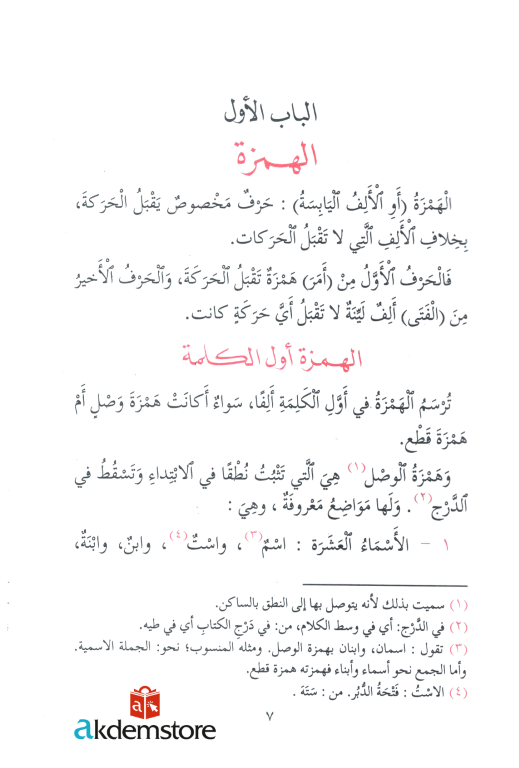 الباب الأول
الهمزة
الْهَمْزَةُ (أَوِ ٱلْأَلِفُ ٱلْيَابِسَةُ) : حَرْفٌ مَخْصُوصٌ يَقْبَلُ ٱلْحَرَكَةَ،
بِخِلَافِ ٱلْأَلِفِ ٱلَّتِي لا تَقْبَلُ ٱلْحَرَكات.
فَالْحَرْفُ ٱلْأَوَّلُ مِنْ (أَمَرَ) هَمْزَةٌ تَقْبَلُ ٱلْحَرَكَةَ، وَٱلْحَرْفُ ٱلْأَخيرُ
مِنَ (الْفَتَى) أَلِفٌ لَيِّنَةٌ لا تَقْبَلُ أَيَّ حَرَكَةٍ كانت.
الهمزة أول الكلمة
تُرْسَمُ ٱلْهَمْزَةُ في أَوَّلِ ٱلْكَلِمَةِ أَلِفًا، سَواءٌ أَكانَتْ هَمْزَةَ وَصْلٍ أَمْ
هَمْزَةَ قَطْعٍ.
وَهَمْزَةُ ٱلْوصْل(١) هِيَ ٱلَّتي تَثْبُتُ نُطْقًا في ٱلابْتِداءِ وَتَسْقُطُ في
ٱلدَّرْج(٢). وَلَها مَوَاضِعُ مَعْروفَةٌ ، وهِيَ :
١ - الأَسْمَاءُ ٱلْعَشَرَة : اسْمٌ(٣)، واسْتٌ(٤)، وابنٌ، وابْنَةٌ،
(١) سميت بذلك لأنه يتوصل بها إلى النطق بالساكن.
(٢) في الدَّرْج: أي في وسط الكلام، من: في دَرْجِ الكتابِ أي في طيه.
(٣) تقول : اسمان، وابنان بهمزة الوصل. ومثله المنسوب؛ نحو: الجملة الاسمية.
وأما الجمع نحو أسماء وأبناء فهمزته همزة قطع.
(٤) الاسْتُ : فَتْحَةُ الدُّبُر. من : سَتَهَ .
٧
akdemstore